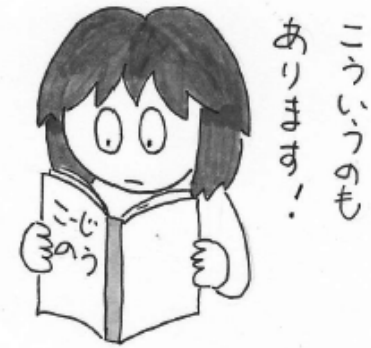 こういうのも
あります!
こーじ
のう